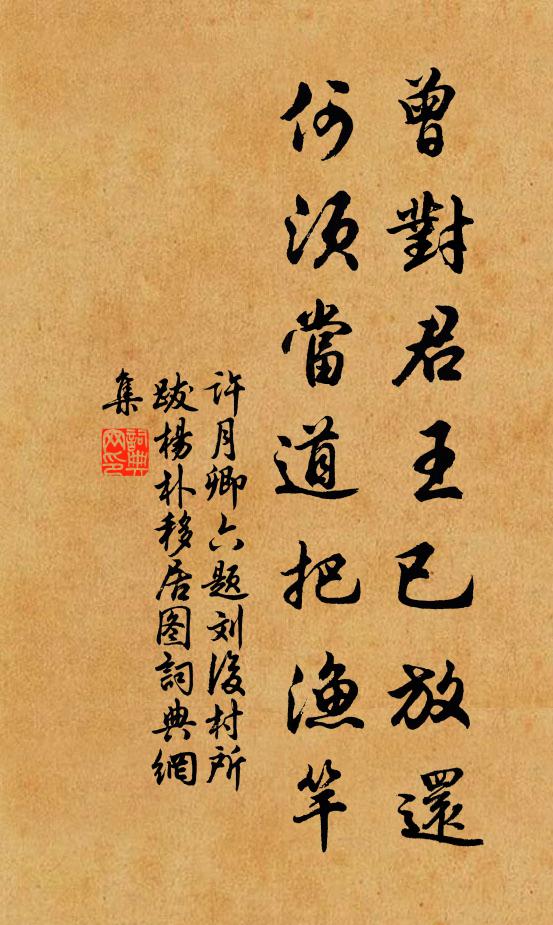 曾對君王已放還
何須當道把漁竿
许月卿六题刘後村所
跋楊朴移居图詞典網
集
詞典
网印